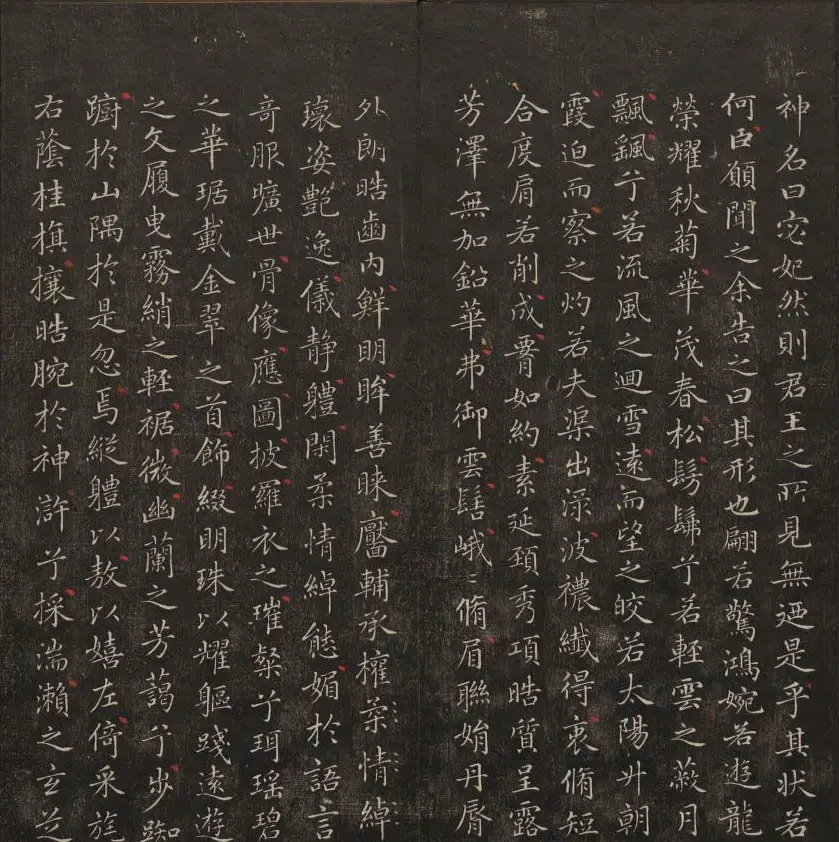 神名曰宓妃然則君王之所見無迺是乎其狀若
何臣願聞之余告之曰其形也翩若驚鴻婉若遊龍
榮耀秋菊華茂春松髣髴兮若輕雲之蔽月
飄颻兮若流風之迴雪遠而望之皎若太陽升朝
霞迫而察之灼若夫渠出淥波襛纖得衷脩短
合度肩若削成𦝫如約素延頸秀項晧質呈露
芳澤無加鉛華弗御雲髻峨〻脩眉聯娟丹脣
外朗晧齒内鮮明眸善睞靨輔承權柔情綽
瓌姿艷逸儀静體閑柔情綽態媚於語言
竒服曠世骨像應圖披羅衣之璀粲兮珥瑶碧
之華琚戴金翠之首飾綴明珠以耀軀踐遠遊
之文履曳霧綃之輕裾微幽蘭之芳藹兮步踟
躕於山隅於是忽焉縱體以敖以嬉左倚采旄
右蔭桂旗攘晧腕於神滸兮採湍瀨之玄芝